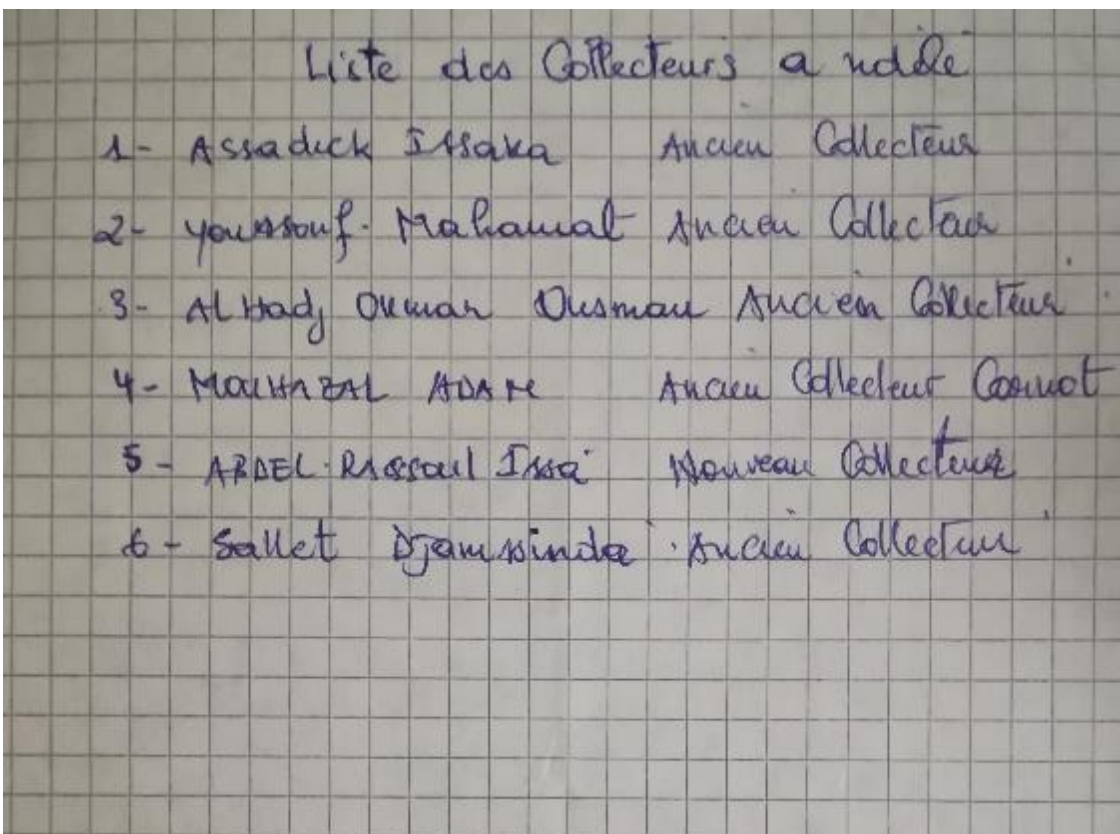 Liste des Collecteurs a ndélé
1- Assadick Issaka Ancien Collecteur
2- Youssouf Mahamat Ancien Collecteur
3- Al Hadj Oumar Ousman Ancien Collecteur
4- ADAM Ancien Collecteur Carnot
5- ABDEL Rassoul Issa Nouveau Collecteur
6- Sallet Djamssinda Ancien Collecteur